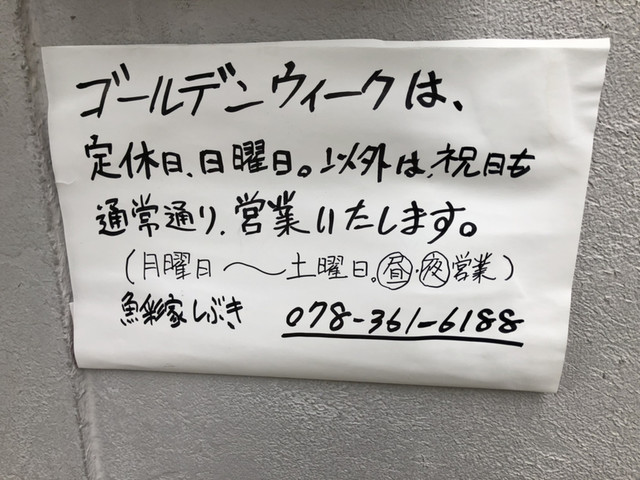 ゴールデンウィークは、
定休日、日曜日。以外は、祝日も
通常通り、営業いたします。
(月曜日〜土曜日、昼・夜営業)
魚彩家しぶき 078-361-6188